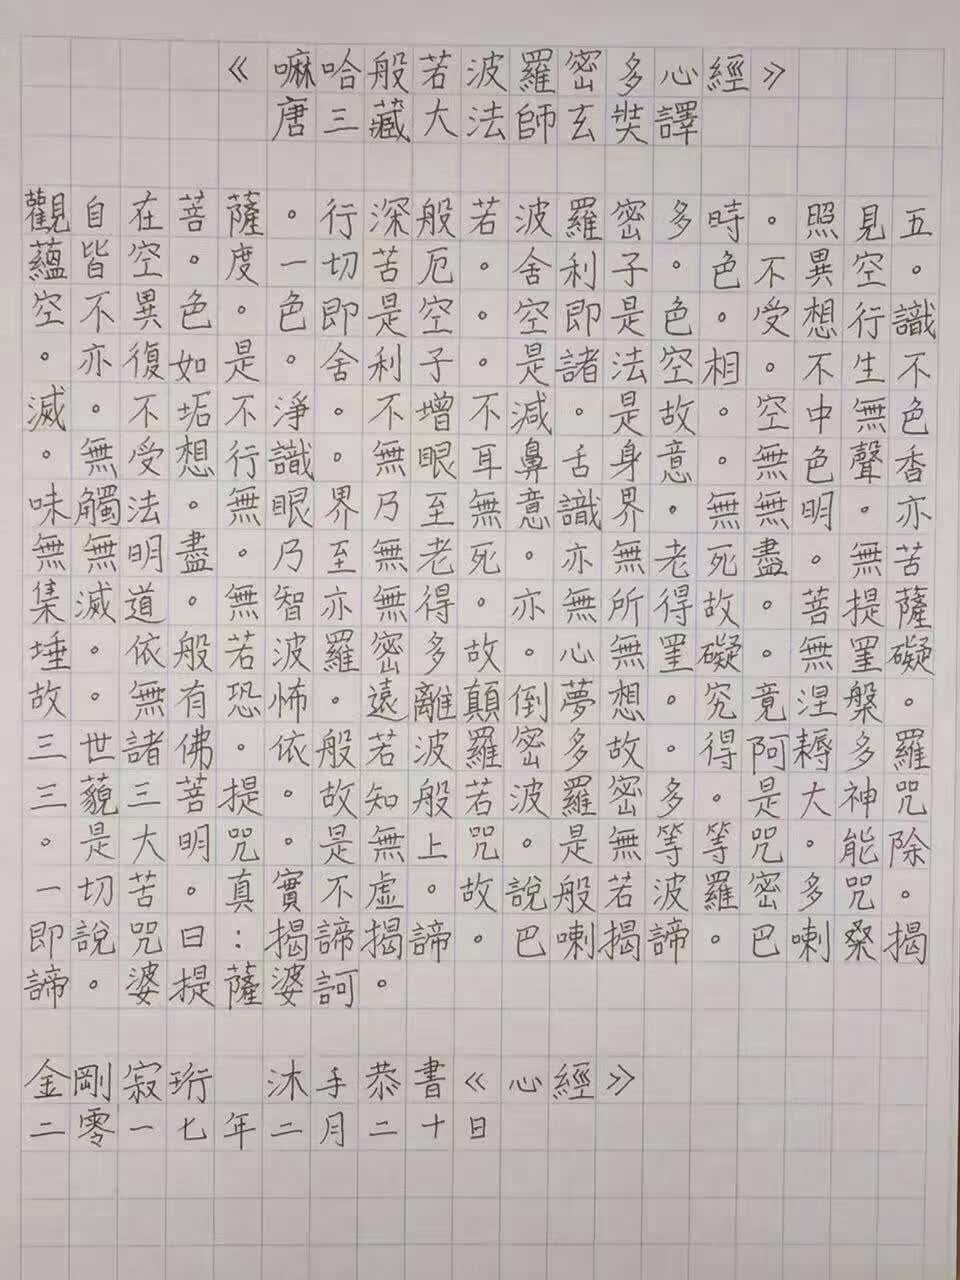 《嘛哈般若波羅密多心經》
唐三藏大法師玄奘譯
觀自在菩薩。行深般若波羅密多時。照見五
蘊皆空。度一切苦厄。舍利子。色不異空。
空不異色。色即是空。空即是色。受想行識
。亦復如是。舍利子。是諸法空相。不生不
滅。不垢不淨。不增不減。是故。空中無色
。無受想行識。無眼耳鼻舌身意。無色聲香
味觸法。無眼界乃至無意識界。無無明。亦
無無明盡。乃至無老死。亦無老死盡。無苦
集滅道。無智亦無得。亦無所得故。菩提薩
埵。依般若波羅密多故。心無罣礙。無罣礙
故。無有恐怖。遠離顛倒夢想。究竟涅槃。
三世諸佛。依般若波羅密多故。得阿耨多羅
三藐三菩提。故知般若波羅密多。是大神咒
。是大明咒。是無上咒。是無等等咒。能除
一切苦。真實不虛。故說般若波羅密多咒。
即說咒曰：揭諦揭諦。巴喇揭諦。巴喇桑揭
諦。婆提薩婆訶。
金剛寂珩 沐手恭書《心經》
二零一七年二月二十日